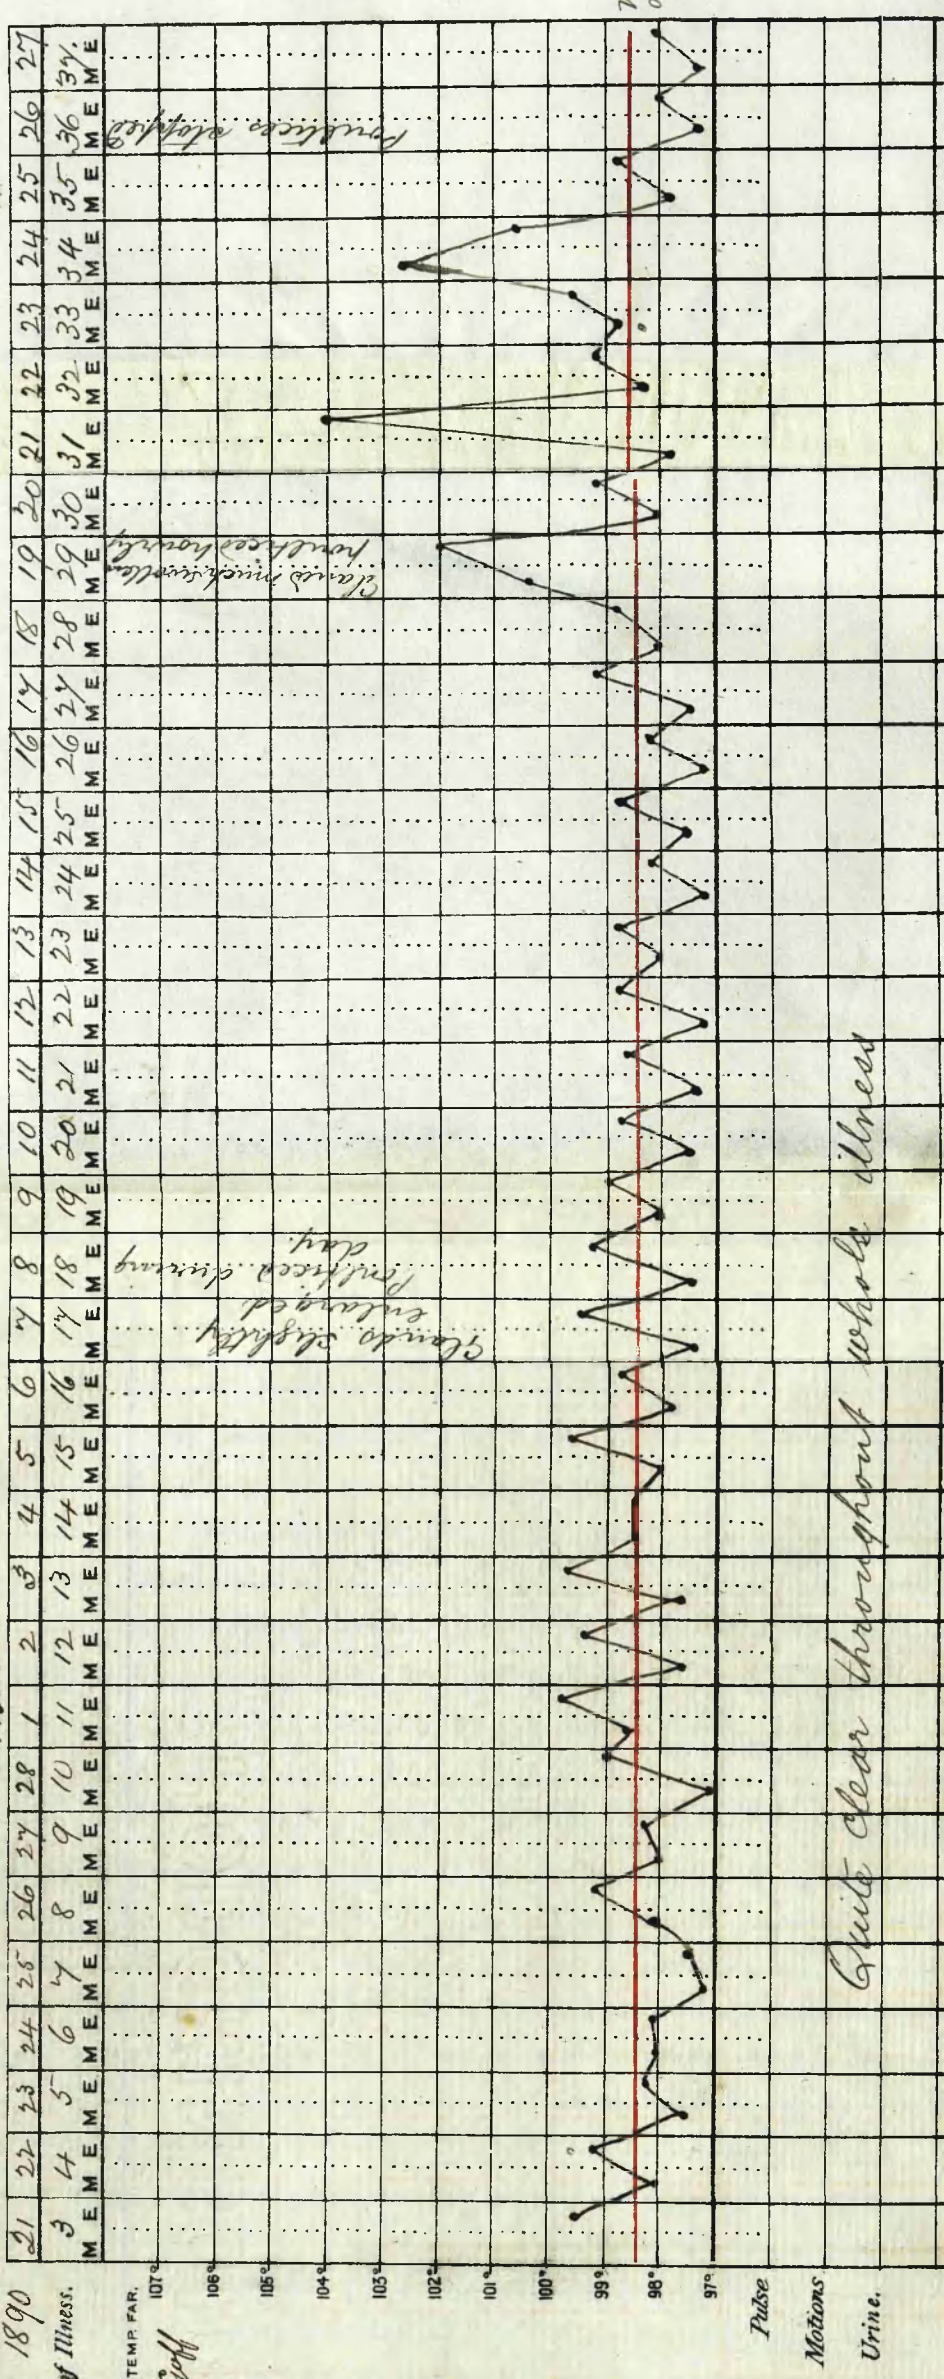 1890 21 22 23 24 25 26 27 28 1 2 3 4 5 6 7 8 9 10 11 12 13 14 15 16 17 18 19 20 21 22 23 24 25 26 27
of Illness. 3 4 5 6 7 8 9 10 11 12 13 14 15 16 17 18 19 20 21 22 23 24 25 26 27 28 29 30 31 32 33 34 35 36 37.
M E M E M E M E M E M E M E M E M E M E M E M E M E M E M E M E M E M E M E M E M E M E M E M E M E M E M E M E M E M E M E M E M E M E M E
TEMP. FAR.
107°
106°
105°
104°
103°
102°
101°
100°
99°
98°
97°
Glands slightly
enlarged
Poulticed during
day.
Glands much swollen
poulticed hourly
Poultices stopped
Pulse
Motions
Urine.
Quite clear throughout whole illness